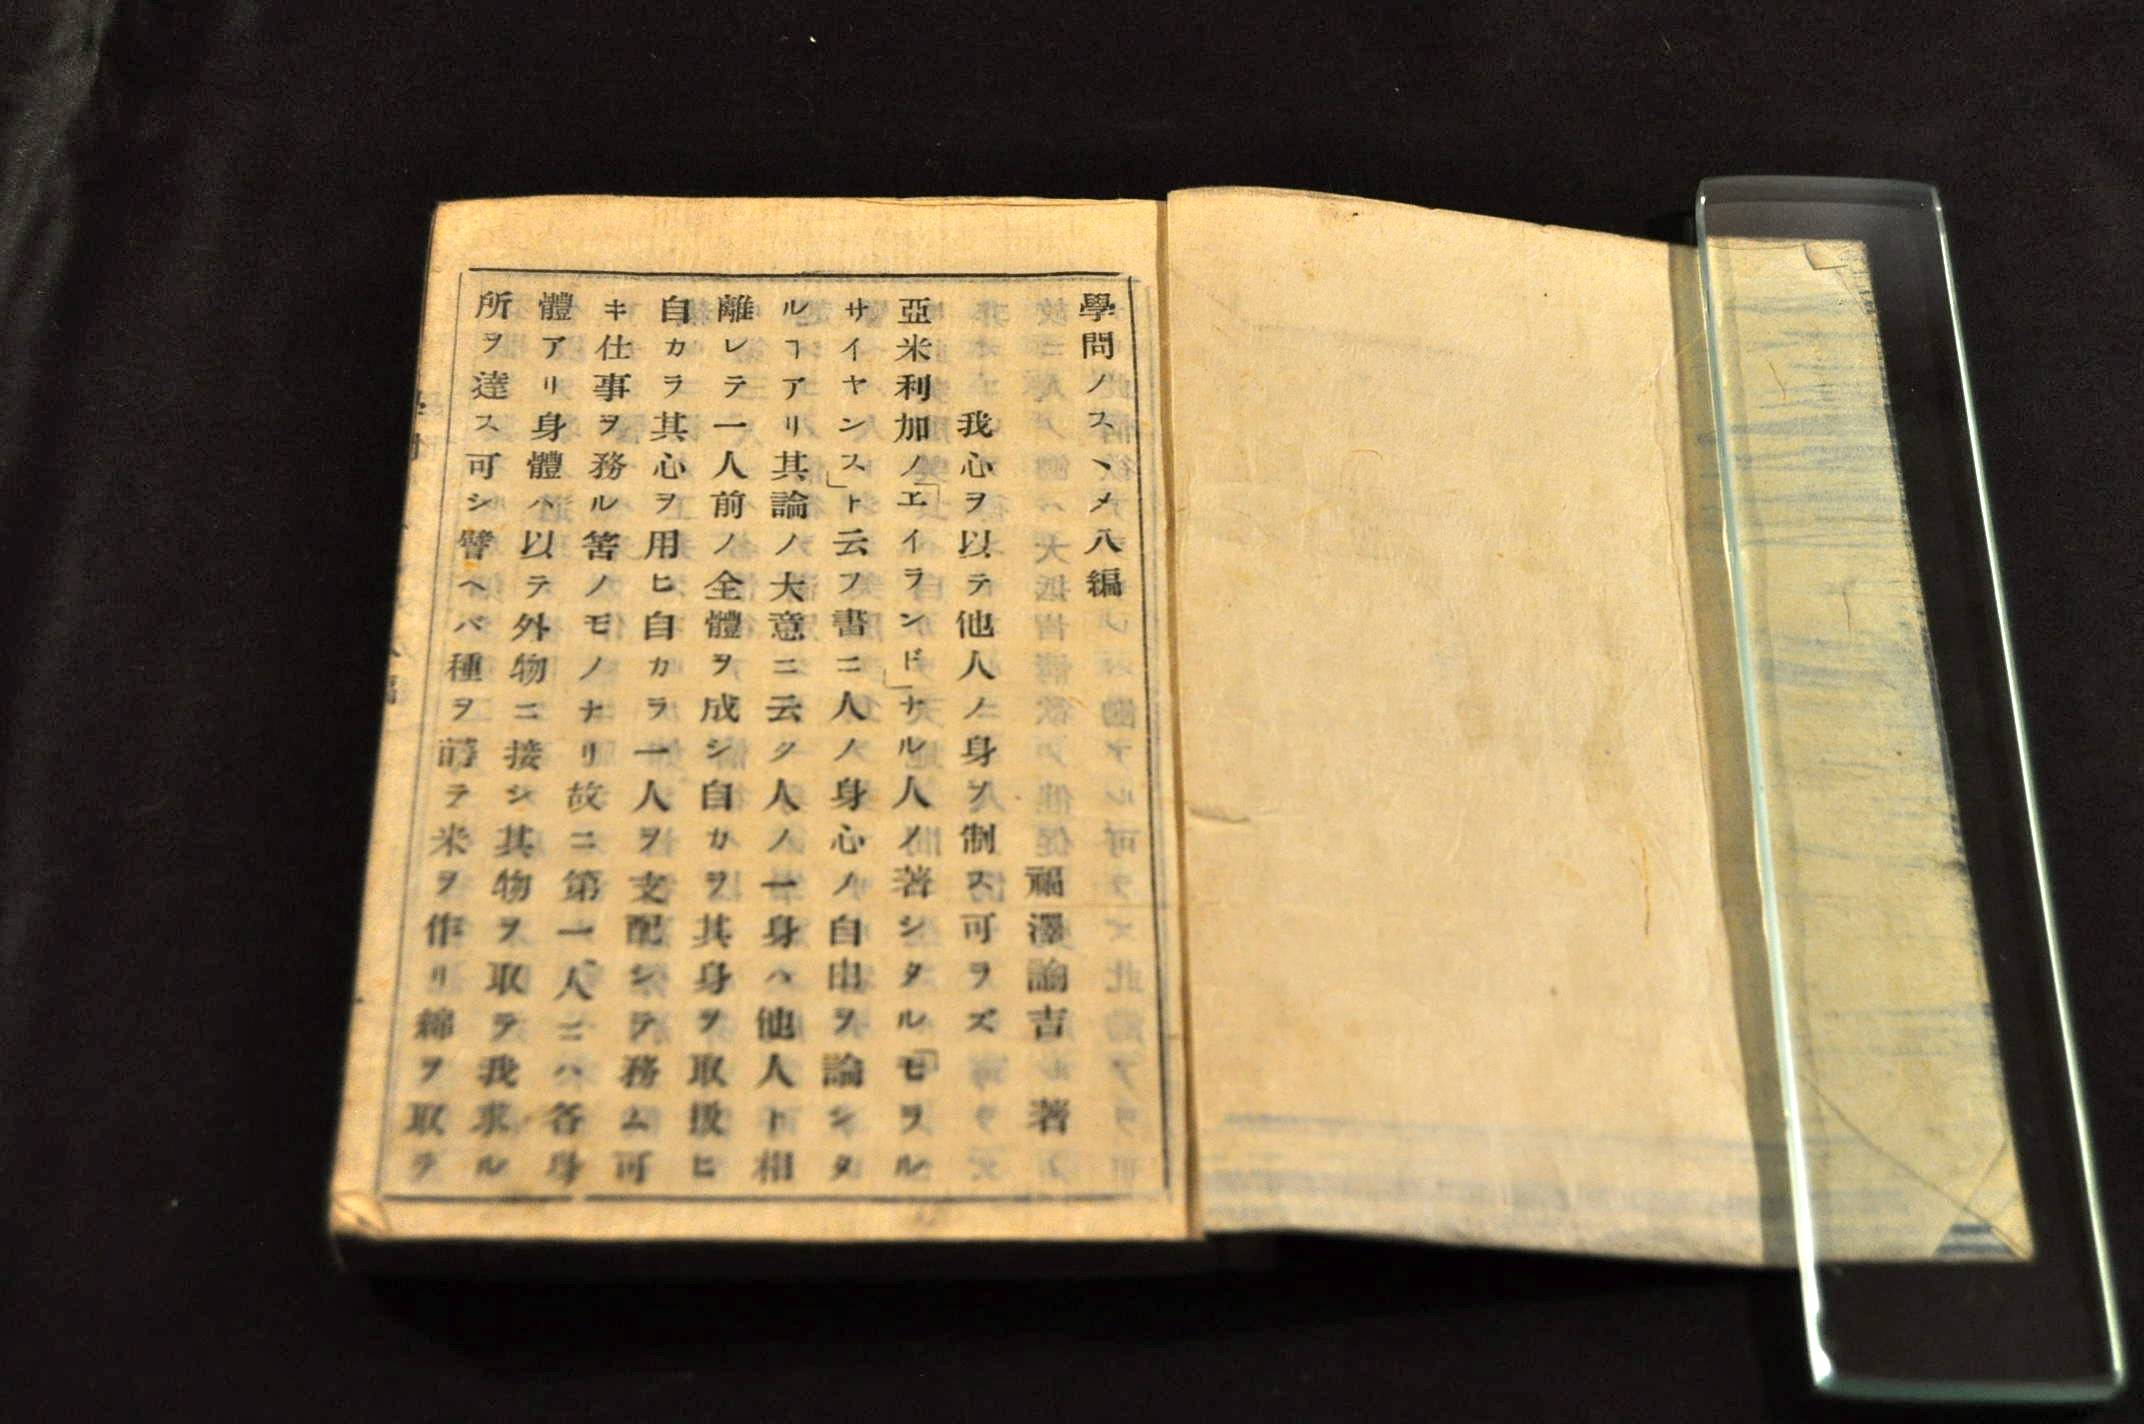 學問ノスヽメ八編
福澤諭吉著
我心ヲ以テ他人ノ身ヲ制ス可ラズ
亞米利加ノ「エイランド」ナル人ノ著シタル「モヲラル
サイヤンス」ト云フ書ニ人ノ身心ノ自由ヲ論シタ
ルヿアリ其論ノ大意ニ云ク人ノ一身ハ他人ト相
離レテ一人前ノ全體ヲ成シ自カラ其身ヲ取扱ヒ
自カラ其心ヲ用ヒ自カラ一人ヲ支配シテ務ム可
キ仕事ヲ務ル筈ノモノナリ故ニ第一人ニハ各身
體アリ身體ハ以テ外物ニ接シ其物ヲ取テ我求ル
所ヲ達ス可シ譬ヘバ種ヲ蒔テ米ヲ作リ綿ヲ取テ